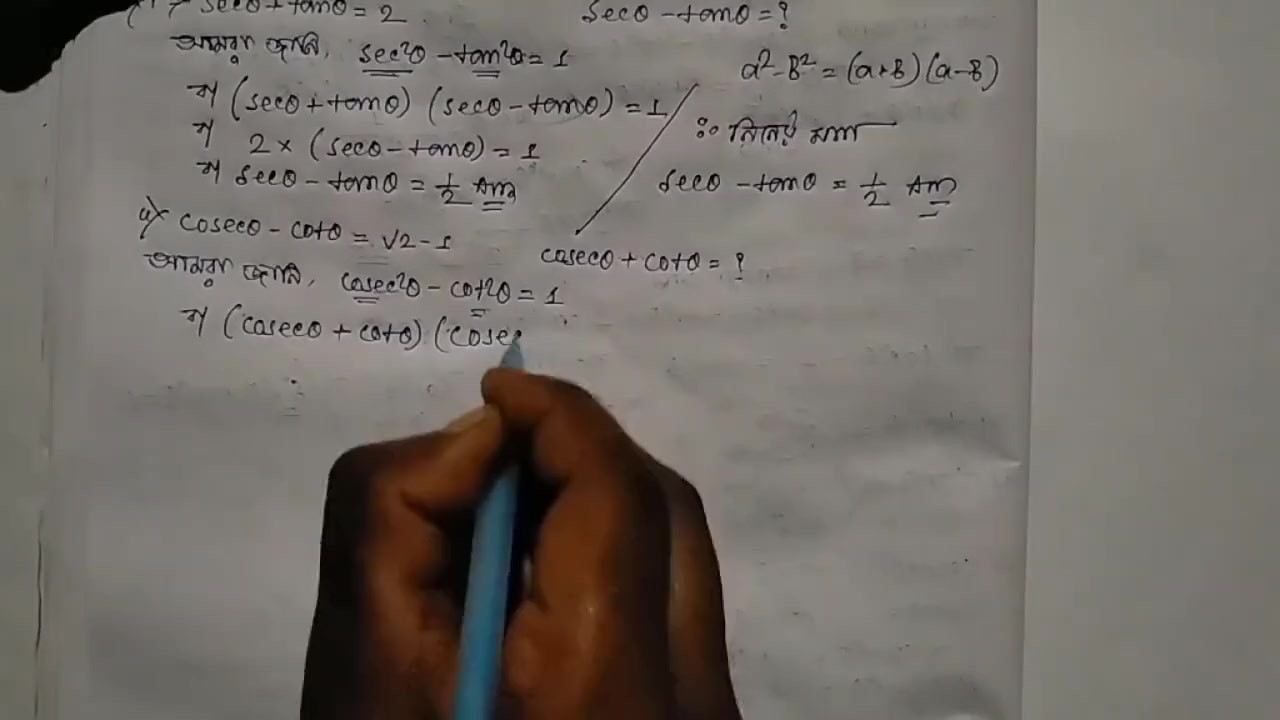 secθ + tanθ = 2
secθ - tanθ = ?
আমরা জানি, sec²θ - tan²θ = 1
a² - b² = (a+b)(a-b)
বা (secθ + tanθ) (secθ - tanθ) = 1
বা 2 × (secθ - tanθ) = 1
∴ নির্ণেয় মান
বা secθ - tanθ = 1/2 Ans
secθ - tanθ = 1/2 Ans
cosecθ - cotθ = √2 - 1
cosecθ + cotθ = ?
আমরা জানি, cosec²θ - cot²θ = 1
বা (cosecθ + cotθ) (cosec